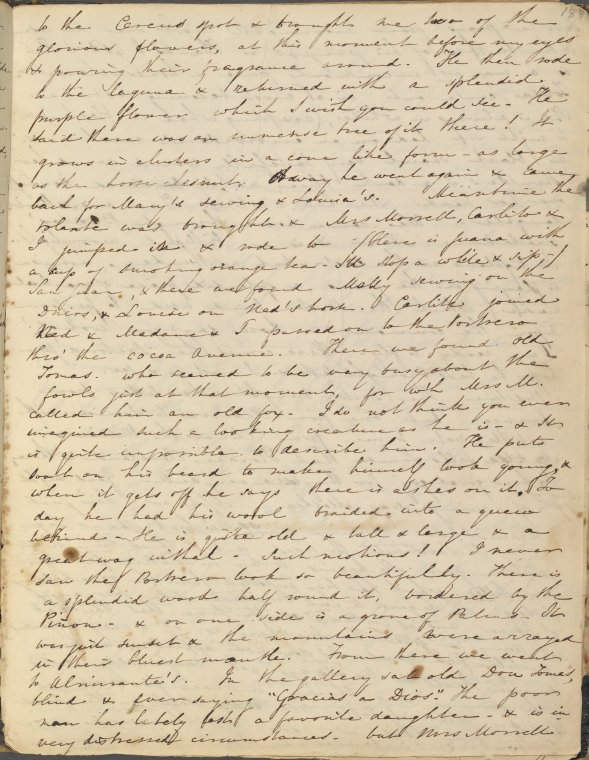 to the Cereus spot & brought me two of the
glorious flowers, at this moment before my eyes
& pouring their fragrance around. He then rode
to the laguna & returned with a splendid
purple flower which I wish you could see - He
said there was an immense tree of it there! It
grows in clusters in a cone like form - as large
as the horse chesnut. Away he went again & came
back for Mary's sewing & Louisa's. Meantime the
volante was brought & Mrs Morrell, Carlito &
I jumped in & rode to - (Here is Juana with
a cup of smoking orange tea - I'll stop a while & sip -)
San Juan, & there we found Mary sewing on the
& Louisa on Ned's horse. Carlito joined
Ned & Madame & I passed on to the Portrero
thro' the cocoa Avenue. There we found old
Tomas. who seemed to be very busy about the
fowls just at that moment, for wh Mrs M.
called him an old fox - I do not think you ever
imagined such a looking creature as he is - & it
is quite impossible to describe him. He puts
soot on his beard to make himself look young, &
when it gets off he says there is ashes on it. To
day he had his wool braided into a queue
behind - He is quite old & tall & large & a
great wag withal - such motions! I never
saw the Portrero look so beautifully. There is
a splendid wood half round it, bordered by the
Piñon - & on one side is a grove of Palms. It
was just sunset & the mountains were arrayed
in their bluest mantle. From there we went
to Almirante's. In the gallery sat old Don Tomas,
blind & ever saying "Gracias a Dios". The poor
man has lately lost a favorite daughter - & is in
very distressed circumstances - but Mrs Morrell